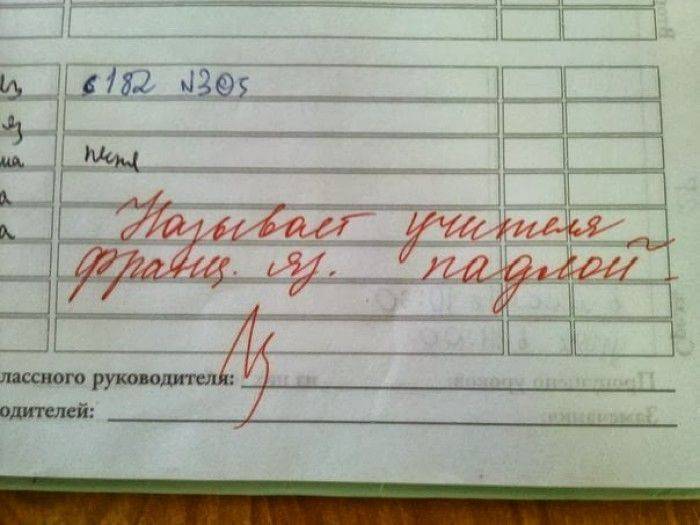 с182 №305
яз
ма песня
а
а
Называет учителя
франц. яз. падлой
лассного руководителя:
одителей: